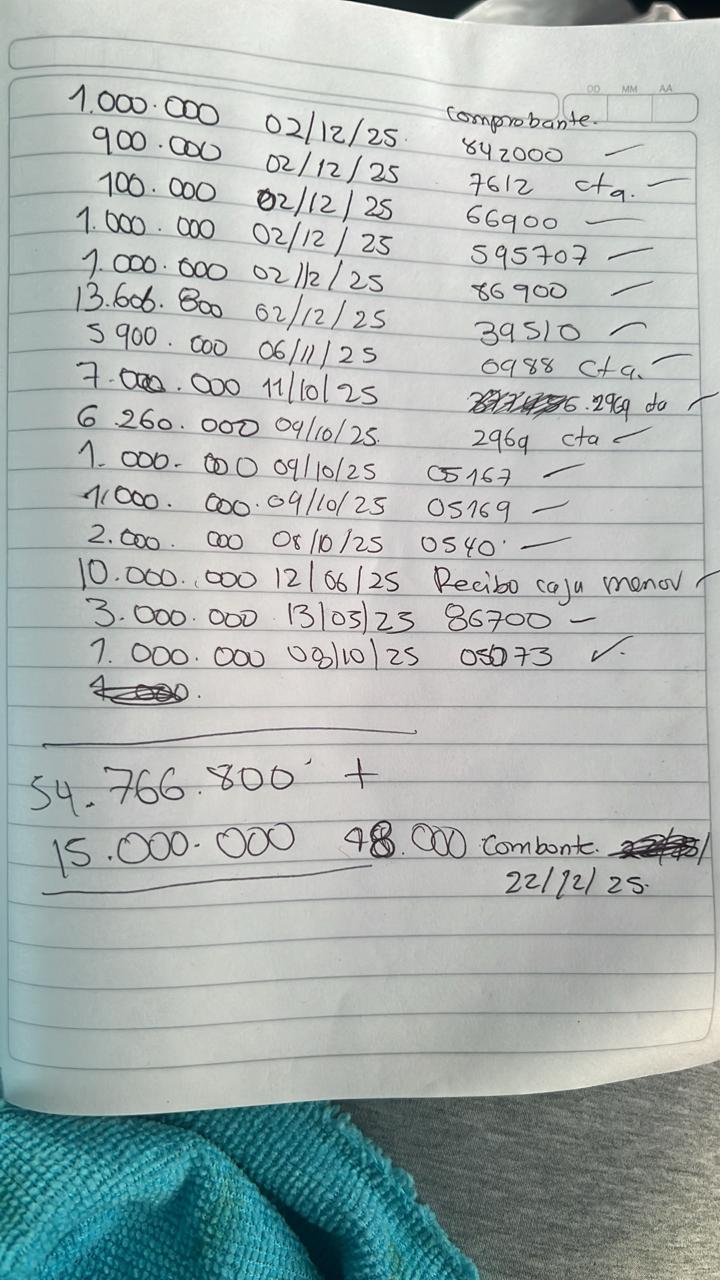 DD MM AA
comprobante.
1.000.000 02/12/25. 842000 —
900.000 02/12/25 7612 cta. —
100.000 02/12/25 66900 —
1.000.000 02/12/25 595707 —
1.000.000 02/12/25 86900 —
13.606.800 02/12/25 39510 —
5 900.000 06/11/25 0988 cta. —
7.000.000 11/10/25 .2969 —
6.260.000 09/10/25. 2969 cta —
1.000.000 09/10/25 05167 —
1.000.000. 09/10/25 05169 —
2.000.000 08/10/25 0540 —
10.000.000 12/06/25 Recibo caja menor —
3.000.000 86700 —
1.000.000 05073 ✓.
54.766.800 +
15.000.000 48.000
22/12/25.